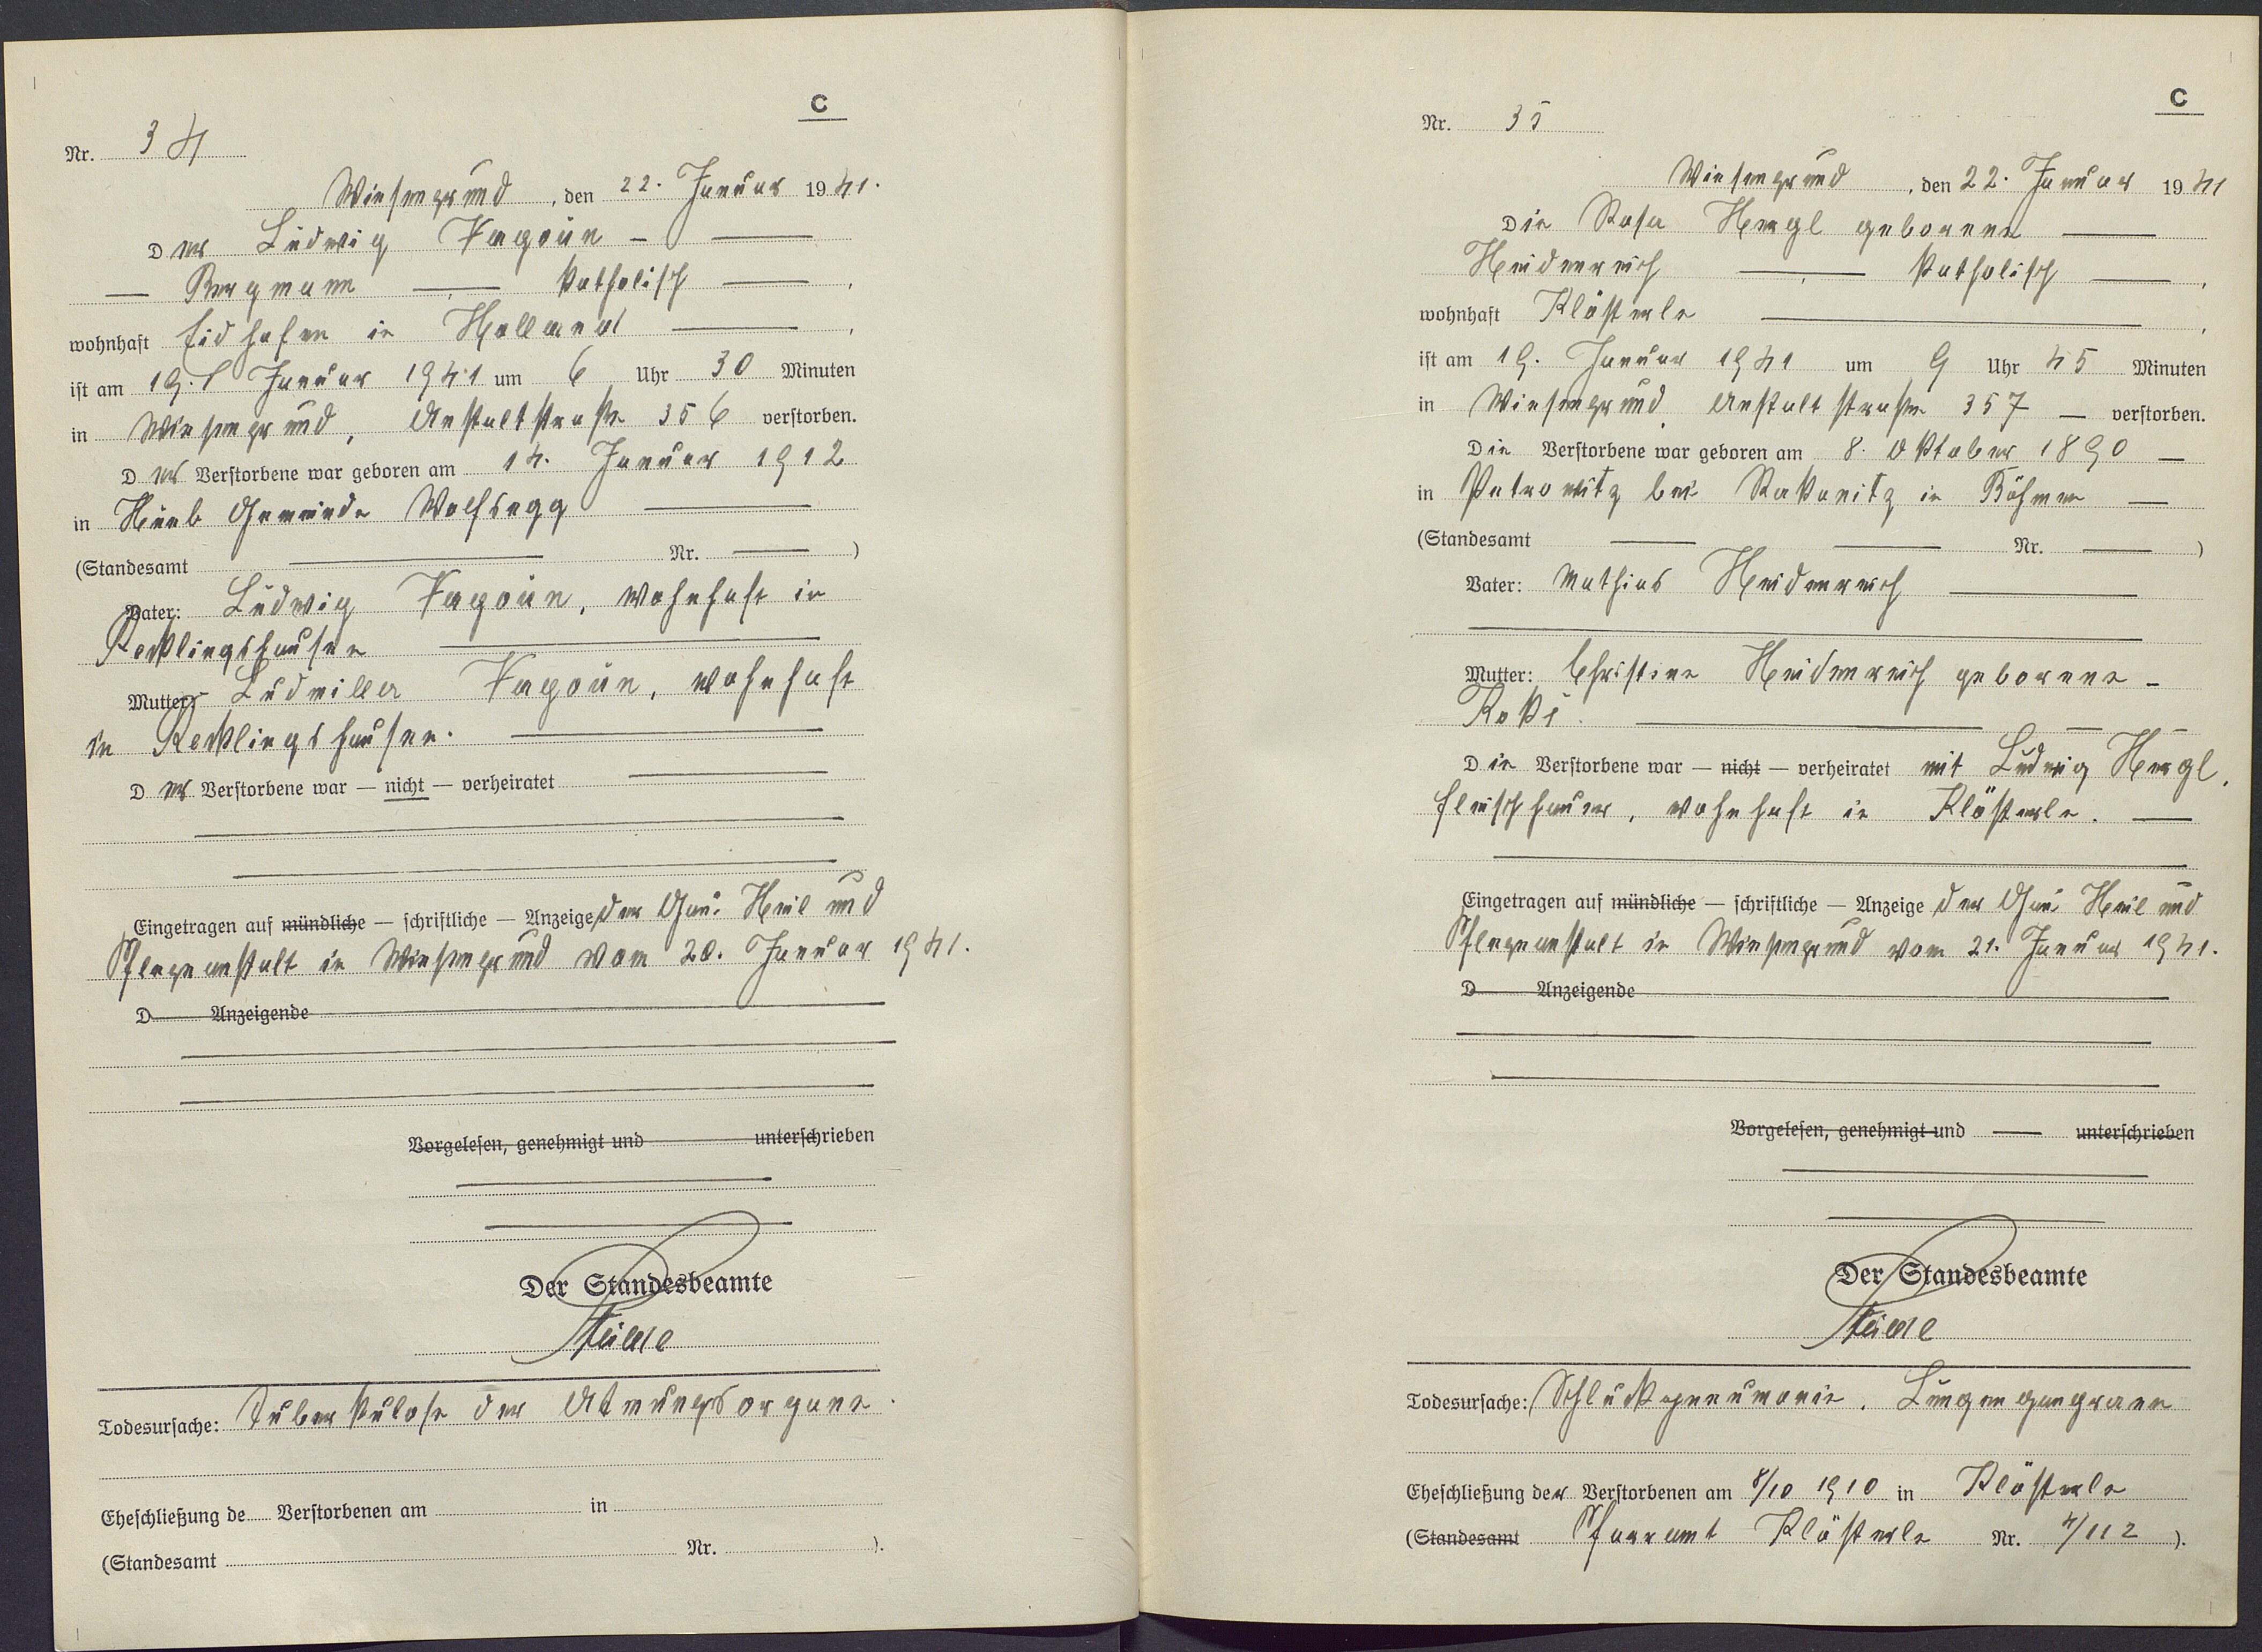 C
Nr. 34
Wiesengrund, den 22. Januar 1941.
Der Ludwig Vagoun —
— Bergmann — , katholisch — ,
wohnhaft Eidhofen in Holland — ,
ist am 19. Januar 1941 um 6 Uhr 30 Minuten
in Wiesengrund, Anstaltstraße 356 verstorben.
Der Verstorbene war geboren am 14. Januar 1912
in Hueb Gemeinde Wolfsegg —
(Standesamt — Nr. — )
Vater: Ludwig Vagoun, wohnhaft in
Recklingshausen —
Mutter: Ludmilla Vagoun, wohnhaft
in Recklingshausen. —
Der Verstorbene war — nicht — verheiratet —
Eingetragen auf mündliche — schriftliche — Anzeige der Gau: Heil und
Pflegeanstalt in Wiesengrund vom 20. Januar 1941.
D Anzeigende
Vorgelesen, genehmigt und unterschrieben
Der Standesbeamte
Todesursache: Tuberkulose der Atmungsorgane.
Eheschließung de Verstorbenen am in
(Standesamt Nr. ).
C
Nr. 35
Wiesengrund, den 22. Januar 1941
Die Rosa Hergl geborene —
Heidenreich — , katholisch — ,
wohnhaft Klösterle — ,
ist am 19. Januar 1941 um 9 Uhr 45 Minuten
in Wiesengrund, Anstaltstraße 357 — verstorben.
Die Verstorbene war geboren am 8. Oktober 1890 —
in Petrowitz bei Rakonitz in Böhmen —
(Standesamt — — Nr. — )
Vater: Mathias Heidenreich —
Mutter: Christine Heidenreich geborene —
Koki. —
Die Verstorbene war — nicht — verheiratet mit Ludwig Hergl,
Fleischhauer, wohnhaft in Klösterle. —
Eingetragen auf mündliche — schriftliche — Anzeige der Gau: Heil und
Pflegeanstalt in Wiesengrund vom 21. Januar 1941.
D Anzeigende
Vorgelesen, genehmigt und — unterschrieben
Der Standesbeamte
Todesursache: Schluckpneumonie. Lungengangraen
Eheschließung der Verstorbenen am 8/10 1910 in Klösterle
(Standesamt Pfarramt Klösterle Nr. 4/112 ).